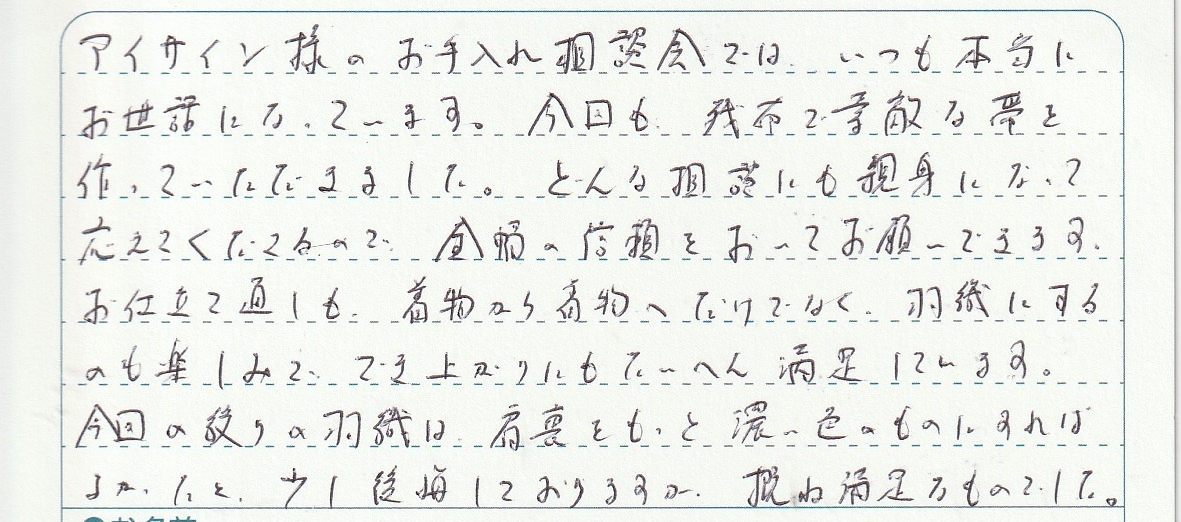 アイサイン様のお手入れ相談会では、いつも本当に
お世話になっています。今回も、残布で素敵な帯を
作っていただきました。どんな相談にも親身になって
応えてくださるので、全幅の信頼をおいてお願いできます。
お仕立て直しも、着物から着物へだけでなく、羽織にする
のも楽しみで、でき上がりにもたいへん満足しています。
今回の絞りの羽織は、肩裏をもっと濃い色のものにすれば
よかったと、少し後悔しておりますが、概ね満足なものでした。